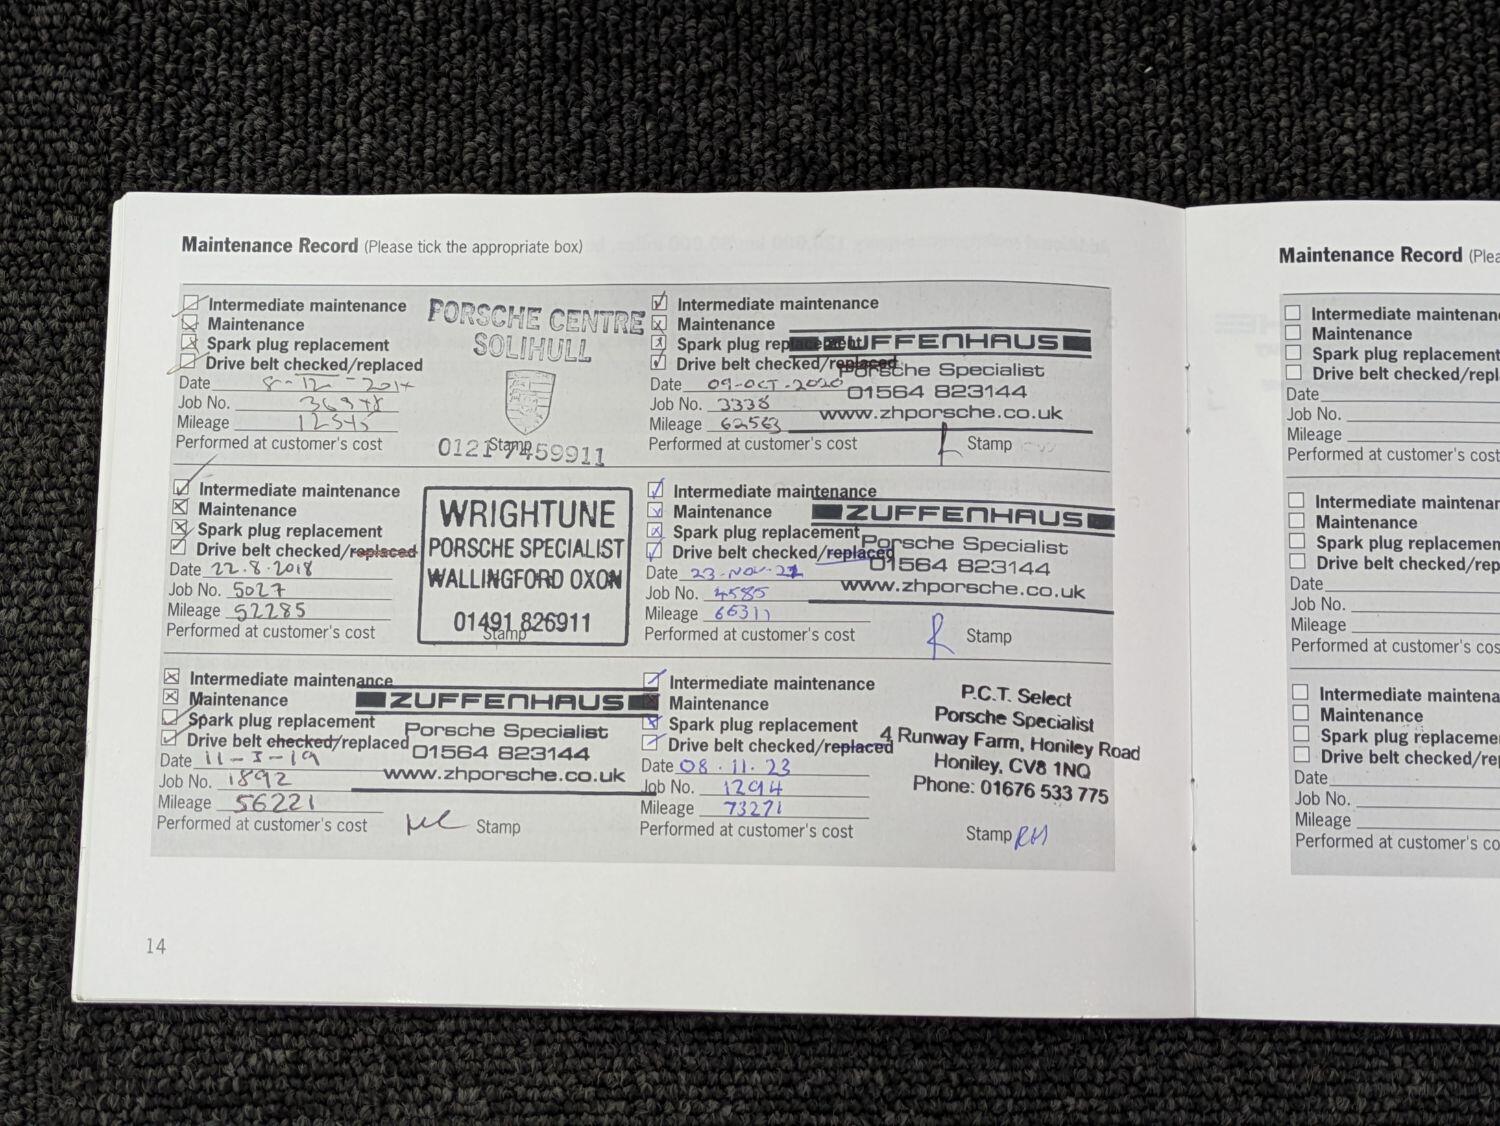 Maintenance Record (Please tick the appropriate box)
Intermediate maintenance
Maintenance
Spark plug replacement
Drive belt checked/replaced
Date
Job No.
Mileage
Performed at customer's cost
PORSCHE CENTRE
SOLIHULL
Stamp
0121 7459911
Intermediate maintenance
Maintenance
Spark plug replacement
Drive belt checked/replaced
Date 09-OCT-2020
Job No. 3338
Mileage 62563
Performed at customer's cost
ZUFFENHAUS
Porsche Specialist
01564 823144
www.zhporsche.co.uk
Stamp
Intermediate maintenance
Maintenance
Spark plug replacement
Drive belt checked/replaced
Date 22.8.2018
Job No. 5027
Mileage 52285
Performed at customer's cost
WRIGHTUNE
PORSCHE SPECIALIST
WALLINGFORD OXON
01491 826911
Stamp
Intermediate maintenance
Maintenance
Spark plug replacement
Drive belt checked/replaced
Date 23-NOV-21
Job No. 4585
Mileage 66311
Performed at customer's cost
ZUFFENHAUS
Porsche Specialist
01564 823144
www.zhporsche.co.uk
Stamp
Intermediate maintenance
Maintenance
Spark plug replacement
Drive belt checked/replaced
Date
Job No. 1892
Mileage 56221
Performed at customer's cost
ZUFFENHAUS
Porsche Specialist
01564 823144
www.zhporsche.co.uk
Stamp
Intermediate maintenance
Maintenance
Spark plug replacement
Drive belt checked/replaced
Date 08.11.23
Job No. 1294
Mileage 73271
Performed at customer's cost
P.C.T. Select
Porsche Specialist
4 Runway Farm, Honiley Road
Honiley, CV8 1NQ
Phone: 01676 533 775
Stamp RH
14
Maintenance Record (Plea
Intermediate maintenan
Maintenance
Spark plug replacement
Drive belt checked/repl
Date
Job No.
Mileage
Performed at customer's cost
Intermediate maintenan
Maintenance
Spark plug replacemen
Drive belt checked/rep
Date
Job No.
Mileage
Performed at customer's cos
Intermediate maintena
Maintenance
Spark plug replaceme
Drive belt checked/re
Date
Job No.
Mileage
Performed at customer's c